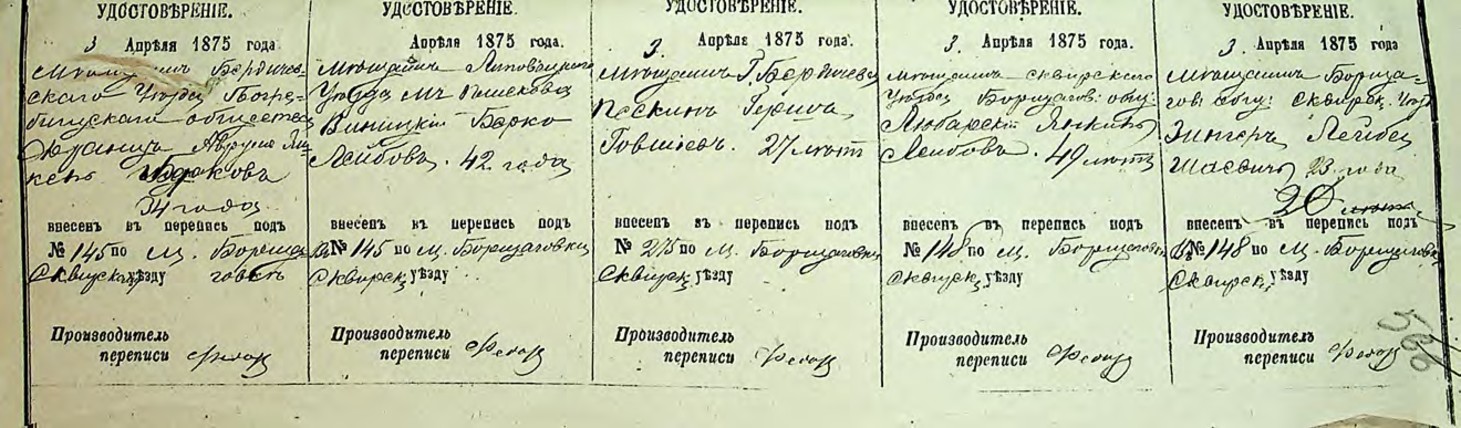 УДОСТОВѢРЕНІЕ.
3 Апрѣля 1875 года
Мѣщанинъ Бердичев-
скаго Уѣзда Погре-
бищскаго общества
Аврумъ Ян-
кель
34 года
внесенъ въ перепись подъ
№ 145 по м. Борща
Сквирск. уѣзду говкѣ
Производитель
переписи
УДОСТОВѢРЕНІЕ.
Апрѣля 1875 года.
Мѣщанинъ Липовецкаго
Уѣзда м. Пискова
Виницкій Берко
Лейбовъ. 42 года
внесенъ въ перепись подъ
№ 145 по м. Борщаговкѣ
Сквирск. уѣзду
Производитель
переписи
УДОСТОВѢРЕНІЕ.
3. Апрѣля 1875 года.
Мѣщанинъ Г. Бердичева
Пескинъ Гершъ
Говшіевъ. 27 лѣтъ
внесенъ въ перепись подъ
№ 215 по м. Борщаговкѣ
Сквирск. уѣзду
Производитель
переписи
УДОСТОВѢРЕНІЕ.
3. Апрѣля 1875 года.
Мѣщанинъ Сквирскаго
Уѣзда Борщагов: общ:
Любарскій Янкель
Лейбовъ. 49 лѣтъ
внесенъ въ перепись подъ
№ 148 по м. Борщаговкѣ
Сквирск. уѣзду
Производитель
переписи
УДОСТОВѢРЕНІЕ.
3 Апрѣля 1875 года
Мѣщанинъ Борща-
гов: общ: Сквирск. Уѣзд
Зингеръ Лейба
Шаевичъ 23 года
20 лѣтъ
внесенъ въ перепись подъ
№ 148 по м. Борщаговкѣ
Сквирск. уѣзду
Производитель
переписи
566